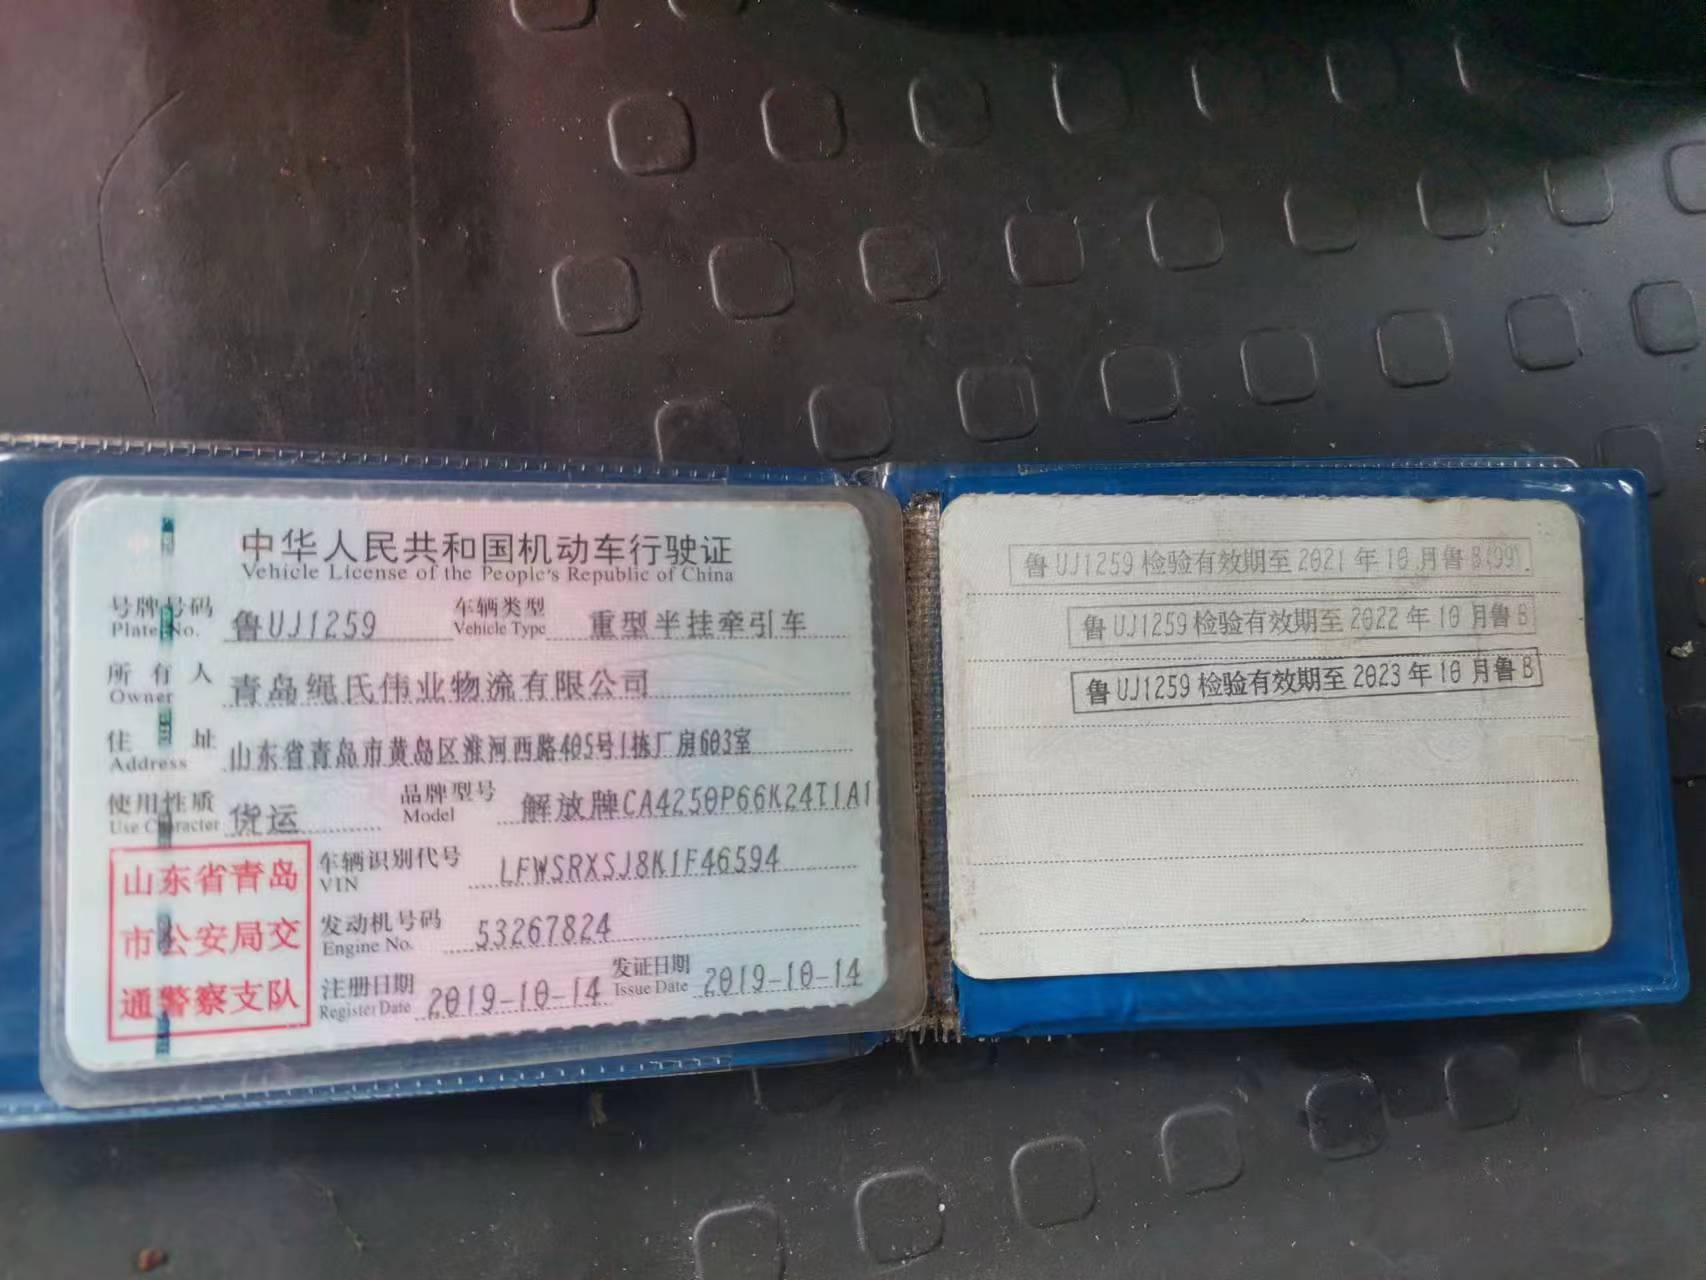 中华人民共和国机动车行驶证
Vehicle License of the People's Republic of China
号牌号码 鲁UJ1259 车辆类型 重型半挂牵引车
Plate No. Vehicle Type
所有人 青岛绳氏伟业物流有限公司
Owner
住址 山东省青岛市黄岛区淮河西路405号1栋厂房603室
Address
使用性质 货运 品牌型号 解放牌CA4250P66K24T1A1
Use Character Model
车辆识别代号 LFWSRXSJ8K1F46594
VIN
发动机号码 53267824
Engine No.
注册日期 2019-10-14 发证日期 2019-10-14
Register Date Issue Date
山东省青岛
市公安局交
通警察支队
鲁UJ1259检验有效期至2021年10月鲁B(99)
鲁UJ1259检验有效期至2022年10月鲁B
鲁UJ1259检验有效期至2023年10月鲁B